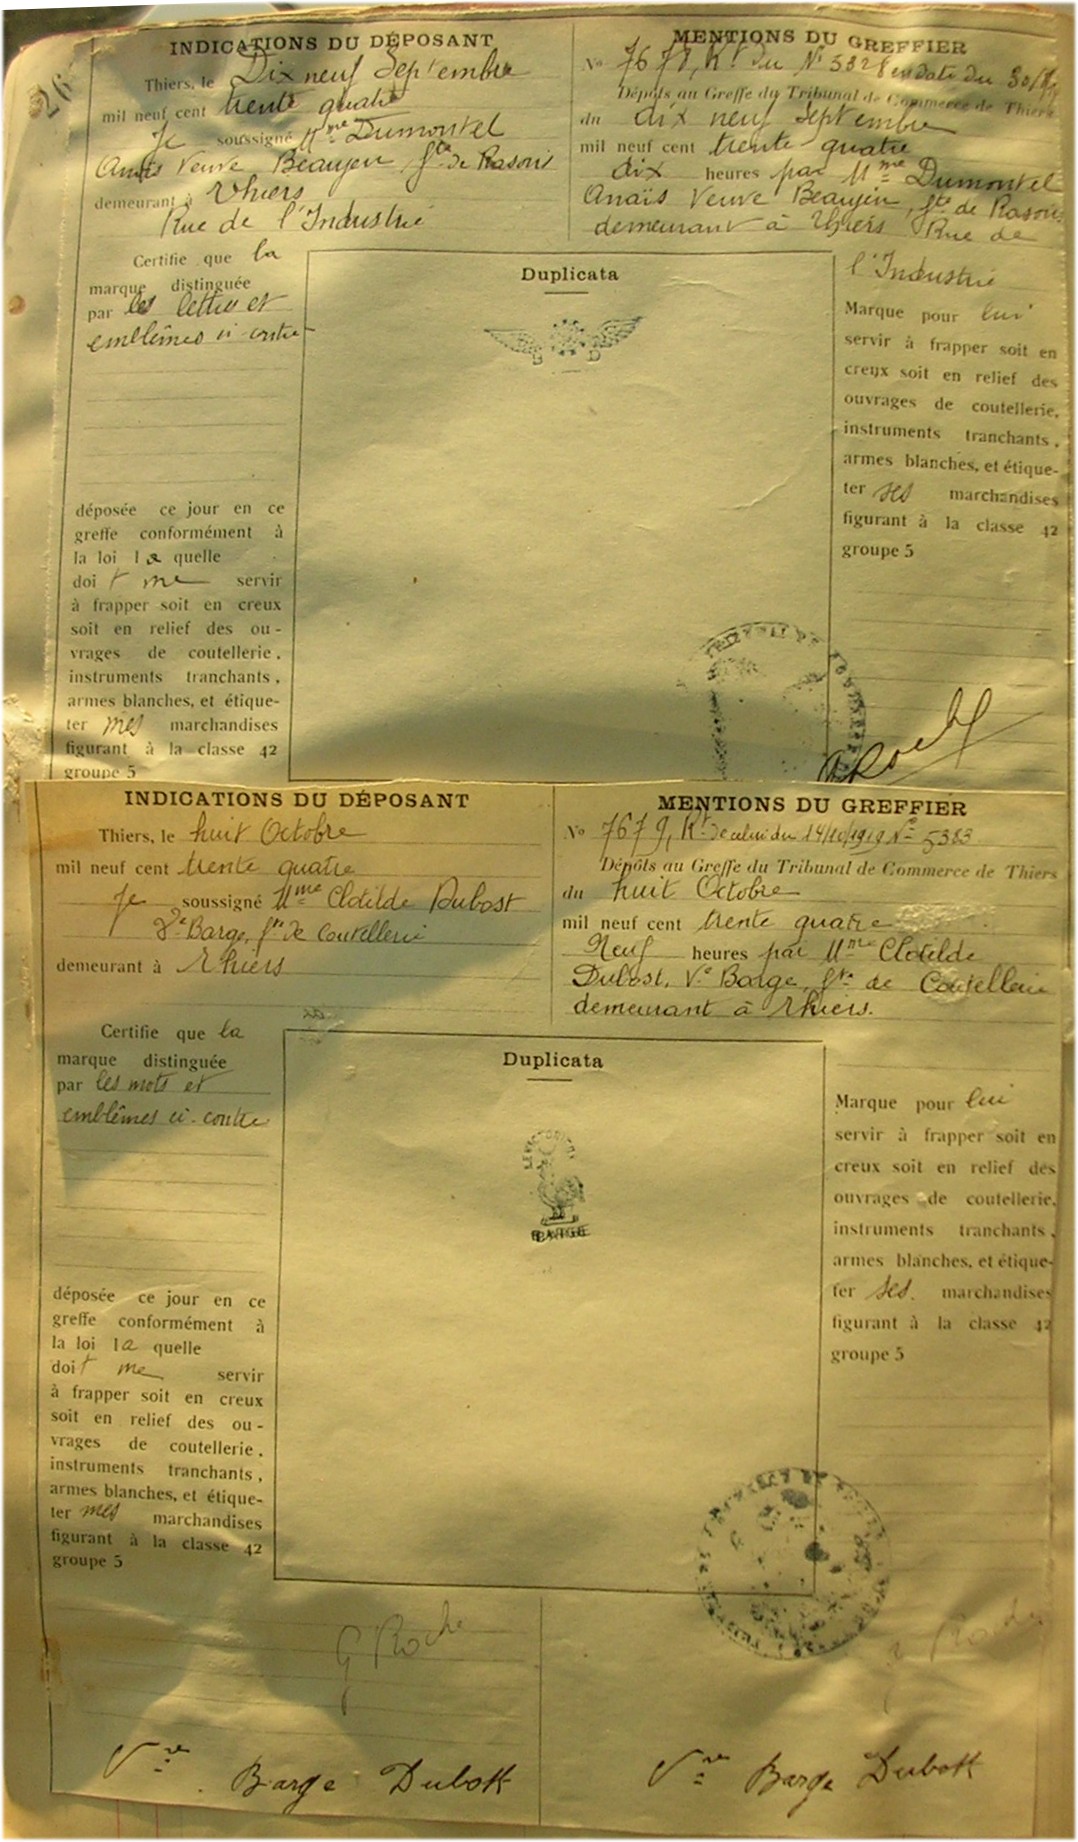 26
INDICATIONS DU DÉPOSANT
Thiers, le Dix neuf Septembre
mil neuf cent trente quatre
Je soussigné Mme Dumontel
Anaïs Veuve Beaujeu, fte de Rasoirs
demeurant à Thiers
Rue de l'Industrie
Certifie que la
marque distinguée
par les lettres et
emblêmes ci-contre
déposée ce jour en ce
greffe conformément à
la loi la quelle
doit me servir
à frapper soit en creux
soit en relief des ou-
vrages de coutellerie,
instruments tranchants,
armes blanches, et étique-
ter mes marchandises
figurant à la classe 42
groupe 5
Duplicata
B D
MENTIONS DU GREFFIER
No 7678, Rt du No 5328 en date du
Dépôts au Greffe du Tribunal de Commerce de Thiers
du dix neuf Septembre
mil neuf cent trente quatre
dix heures par Mme Dumontel
Anaïs Veuve Beaujeu, fte de Rasoirs
demeurant à Thiers Rue de
l'Industrie
Marque pour lui
servir à frapper soit en
creux soit en relief des
ouvrages de coutellerie,
instruments tranchants,
armes blanches, et étique-
ter ses marchandises
figurant à la classe 42
groupe 5
Roche
INDICATIONS DU DÉPOSANT
Thiers, le huit Octobre
mil neuf cent trente quatre
Je soussigné Mme Clotilde Dubost
Ve Barge, fte de Coutellerie
demeurant à Thiers
Certifie que la
marque distinguée
par les mots et
emblêmes ci-contre
déposée ce jour en ce
greffe conformément à
la loi la quelle
doit me servir
à frapper soit en creux
soit en relief des ou-
vrages de coutellerie,
instruments tranchants,
armes blanches, et étique-
ter mes marchandises
figurant à la classe 42
groupe 5
Duplicata
BARGE
MENTIONS DU GREFFIER
No 7679, Rt de celui du 14/10/1919 No 5383
Dépôts au Greffe du Tribunal de Commerce de Thiers
du huit Octobre
mil neuf cent trente quatre
Neuf heures par Mme Clotilde
Dubost, Ve Barge, fte de Coutellerie
demeurant à Thiers.
Marque pour lui
servir à frapper soit en
creux soit en relief des
ouvrages de coutellerie,
instruments tranchants,
armes blanches, et étique-
ter ses marchandises
figurant à la classe 42
groupe 5
G Roche
G Roche
Vve Barge Dubost
Vve Barge Dubost